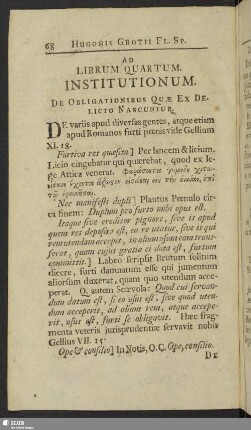 68 HUGONIS GROTII FL. SP.
AD
LIBRUM QUARTUM.
INSTITUTIONUM.
DE OBLIGATIONIBUS QUÆ EX DE-
LICTO NASCUNTUR.
DE variis apud diversas gentes, atque etiam
apud Romanos furti pœnis vide Gellium
XI. 18.
Furtiva res quæsita] Per lancem & licium.
Licio cingebatur qui quærebat, quod ex le-
ge Attica venerat.
Nec manifesti dupli] Plautus Pœnulo cir-
ca finem: Duplum pro furto mihi opus est.
Itaque sive creditor pignore, sive is apud
quem res deposita est, ea re utatur, sive is qui
rem utendam accepit, in alium usum eam trans-
ferat, quam cujus gratia ei data est, furtum
committit.] Labeo scripsit Brutum solitum
dicere, furti damnatum esse qui jumentum
aliorsum duxerat, quam quo utendum acce-
perat. Q. autem Scævola: Quod cui servan-
dum datum est, si eo usus est, sive quod uten-
dum acceperit, ad aliam rem, atque accepe-
rit, usus est, furti se obligavit. Hæc frag-
menta veteris jurisprudentiæ servavit nobis
Gellius VII. 15.
Ope & consilio] In Notis, O. C. Ope, consilio.
De
SLUB